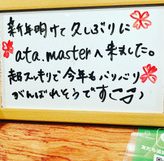 新年明けて久しぶりに
ata.masterへ来ました。
超スッキリで今年もバリバリ
がんばれそうです